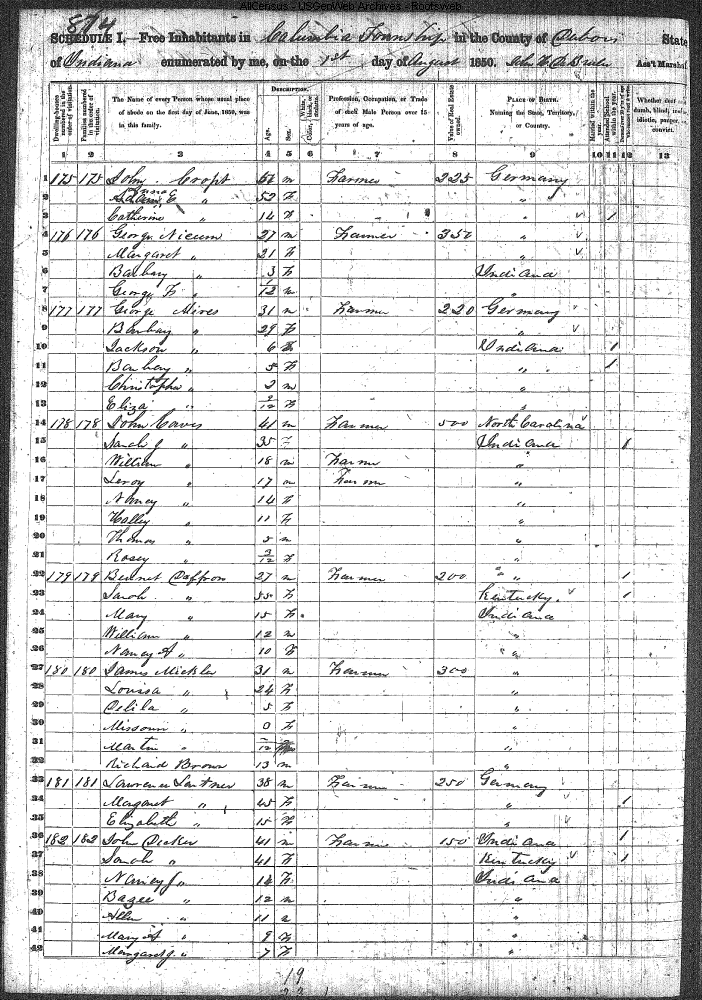 AllCensus - USGenWeb Archives - Rootsweb
874
SCHEDULE I.—Free Inhabitants in Columbia Township in the County of Dubois State
of Indiana enumerated by me, on the 1st day of August 1850. Ass't Marshal
Dwelling-houses numbered in the order of visitation. Families numbered in the order of visitation. The Name of every Person whose usual place of abode on the first day of June, 1850, was in this family. DESCRIPTION. Age. Sex. White, black, or mulatto. Profession, Occupation, or Trade of each Male Person over 15 years of age. Value of Real Estate owned. PLACE OF BIRTH. Naming the State, Territory, or Country. Married within the year. Attended School within the year. Whether deaf and dumb, blind, idiotic, pauper, convict.
1 2 3 4 5 6 7 8 9 10 11 12 13
1 175 175 John Cropt m Farmer 225 Germany
2 E " 52 F "
3 Catherine " 14 F " " 1
4 176 176 George Nicum 27 m Farmer 350 "
5 Margaret " 21 F "
6 Barbary " 3 F Indiana
7 George F " /12 m "
8 177 177 George Mires 31 m Farmer 220 Germany
9 Barbary " 29 F "
10 Jackson " 6 Indiana 1
11 Barbery " 5 F " 1
12 Christopher " 2 m "
13 Eliza " /12 F "
14 178 178 John Caves 41 m Farmer 500 North Carolina
15 Sarah J " 35 F Indiana 1
16 William " 18 m Farmer "
17 Leroy " 17 m Farmer "
18 Nancy " 14 F "
19 " 11 F "
20 Thomas " 5 m "
21 Rosey " /12 F "
22 179 179 Bennet Caffron 27 m Farmer 200 " " 1
23 Sarah " 55 F Kentucky 1
24 Mary " 15 F Indiana
25 William " 12 m "
26 Nancy A " 10 F "
27 180 180 James Mickler 31 m Farmer 300 "
28 Louisa " 24 F "
29 Delila " 5 F "
30 Missouri " 0 F "
31 Martin " /12 "
32 Richard Brown 13 m "
33 181 181 Lawrence Lentner 38 m Farmer 250 Germany
34 Margaret " 45 F " 1
35 Elizabeth " 15 F "
36 182 182 John Decker 41 m Farmer 150 Indiana 1
37 Sarah " 41 F Kentucky 1
38 Nancy J " F Indiana
39 " 12 m "
40 Allen " 11 "
41 Mary A " 9 F "
42 Margaret J " 7 F "
19